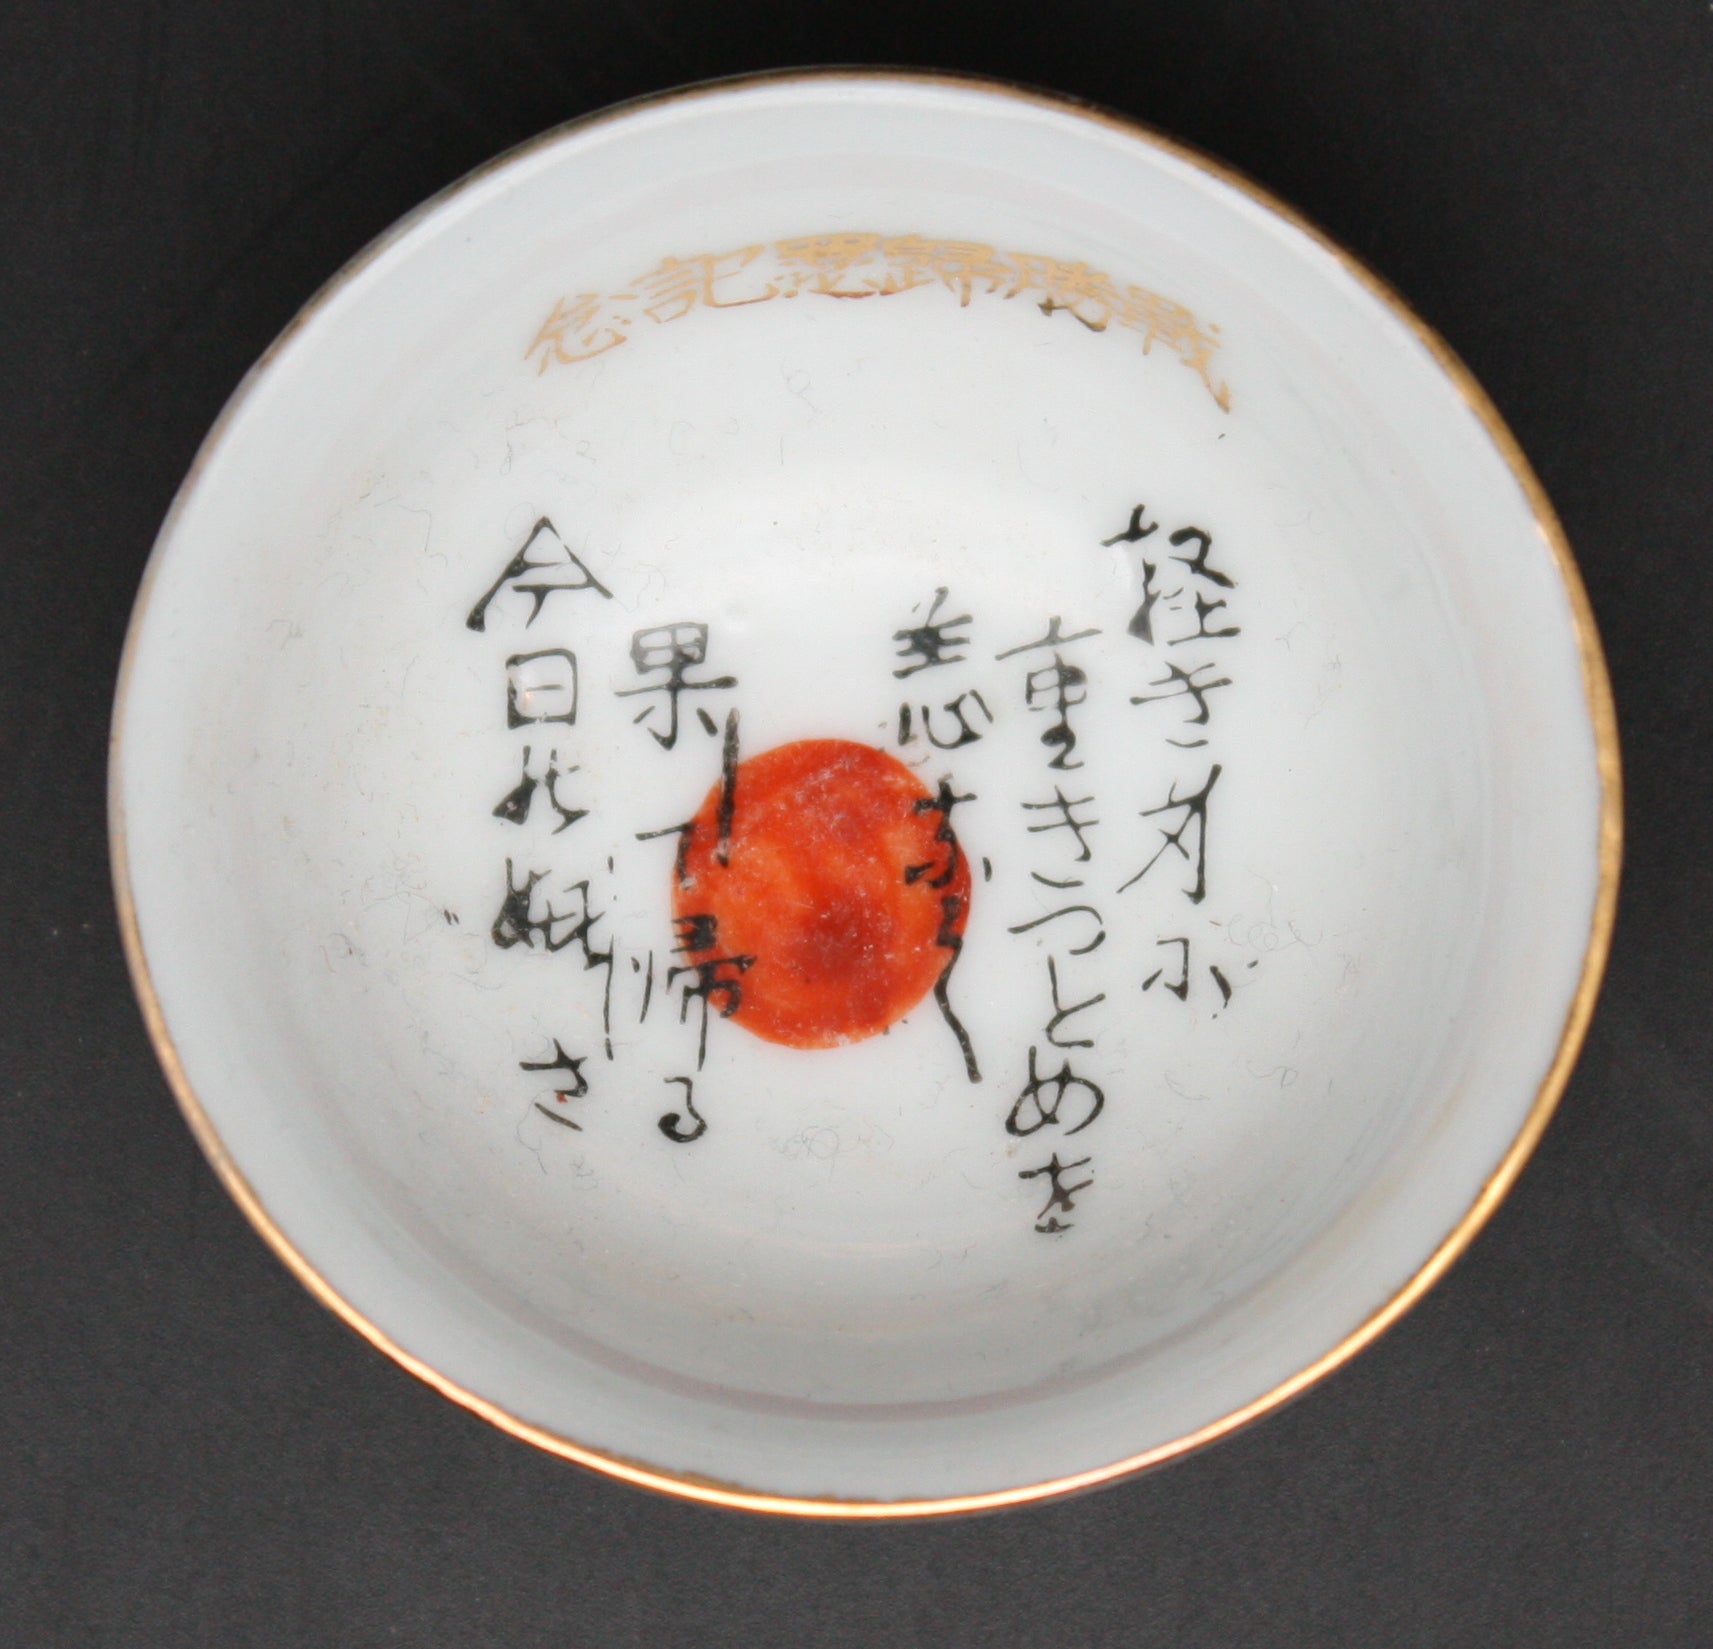 戰勝歸還記念
軽き身に
重きつとめを
恙なく
果して帰る
今日の嬉しさ